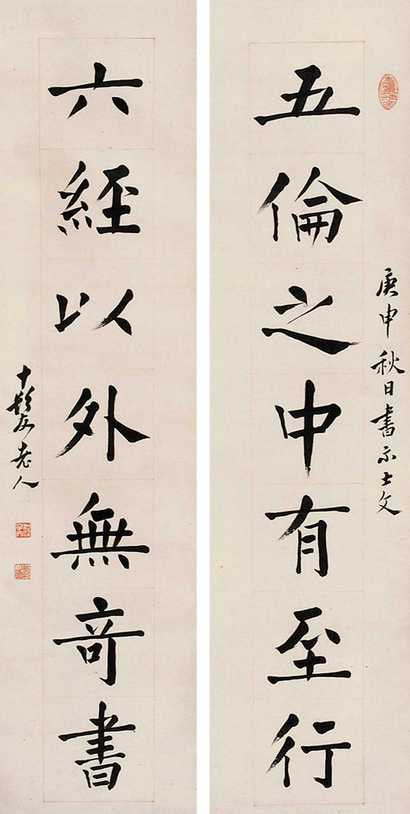 庚申秋日書示士文
五倫之中有至行
六經以外無奇書
十髮老人